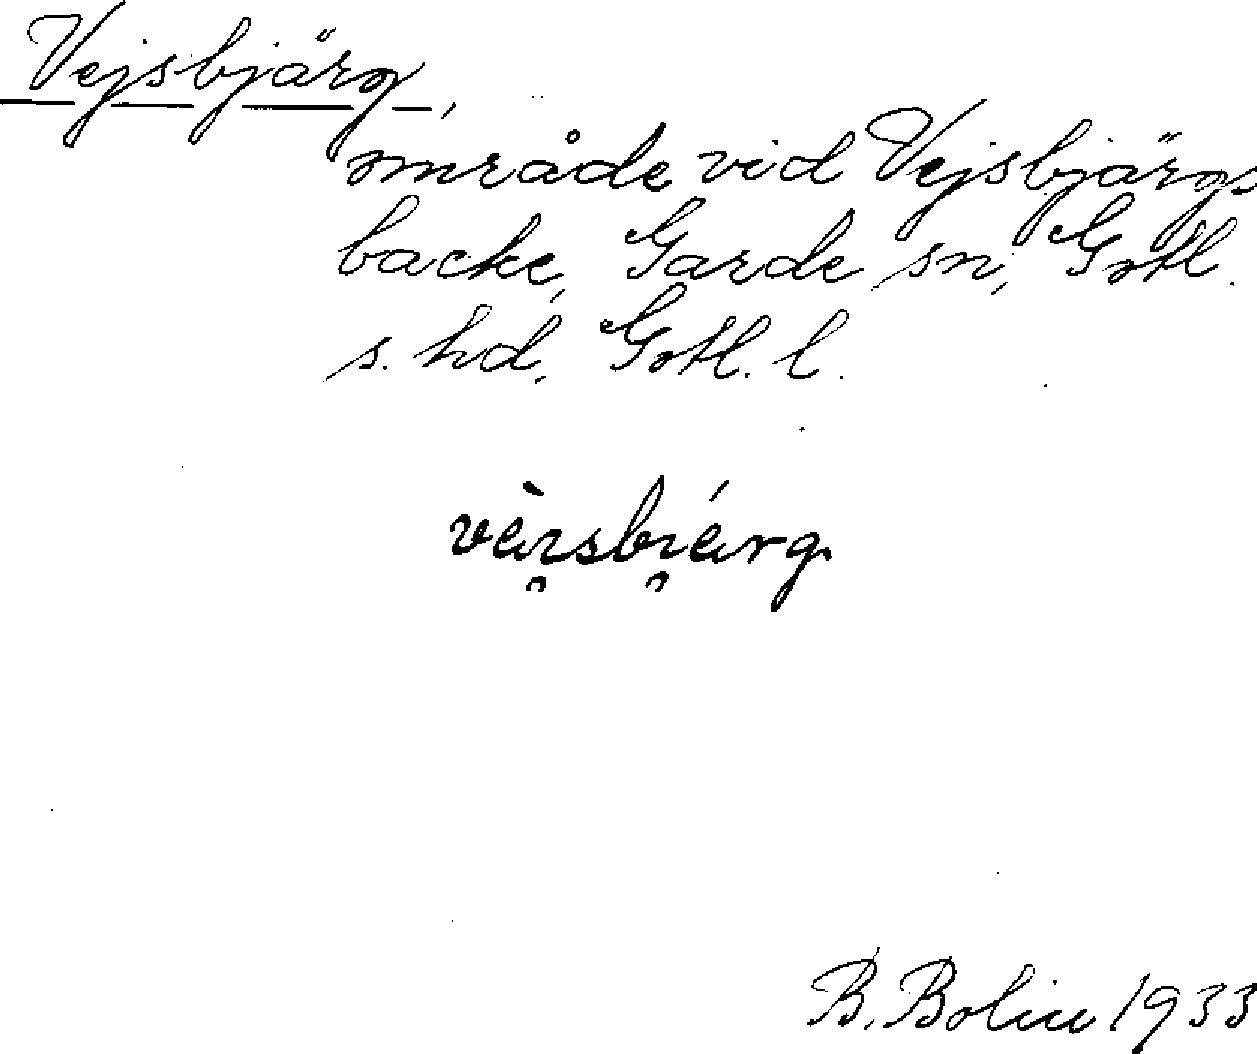 Vejsbjärg,
område vid Vejsbjärgs
backe, Garde sn, Gotl.
s. hd, Gotl. l.
vàı̯sbı̯árg.
B. Bolin 1933